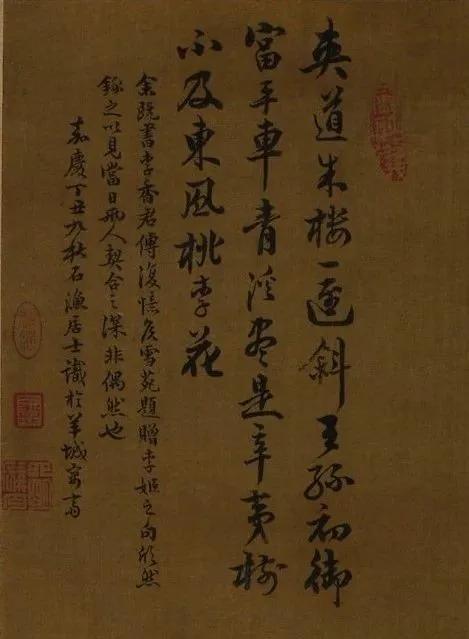 夾道朱楼一逕斜王孫初御
富平車青溪盡是辛夷樹
不及東風桃李花
余既書李香君傳復憶侯雪苑題贈李姬之句欣然
錄之以見當日兩人契合之深非偶然也
嘉慶丁丑九秋石漁居士識於羊城寓齋